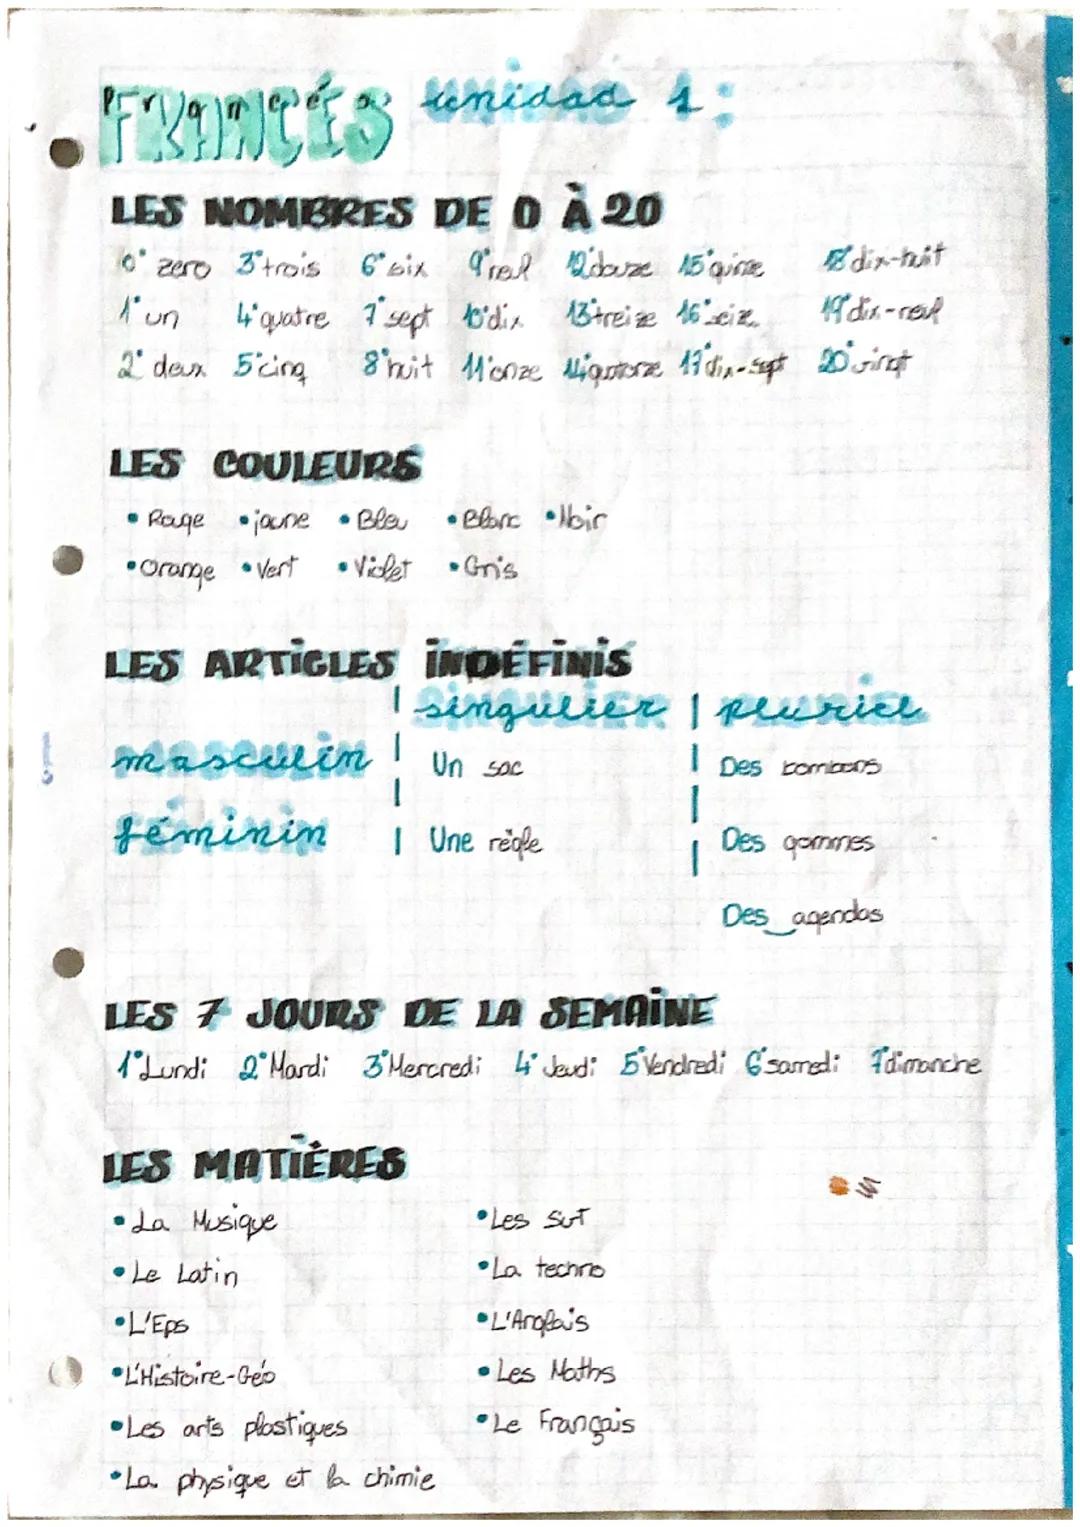 FRANCÉS unidad 1:
LES NOMBRES DE 0 À 20
0° zero 3° trois 6° six 9° neuf 12° douze 15° quinze 18° dix-huit
1° un 4° quatre 7° sept 10° dix 13° treize 16° seize 19° dix-neuf
2° deux 5° cinq 8° huit 11° onze 14° quatorze 17° dix-sept 20° vingt
LES COULEURS
• Rouge • jaune • Bleu • Blanc • Noir
• Orange • Vert • Violet • Gris
LES ARTICLES INDÉFINIS
singulier pluriel
masculin Un sac Des bombons
féminin Une règle Des gommes
Des agendas
LES 7 JOURS DE LA SEMAINE
1° Lundi 2° Mardi 3° Mercredi 4° Jeudi 5° Vendredi 6° samedi 7° dimanche
LES MATIÈRES
• La Musique • Les SVT
• Le Latin • La techno
• L'Eps • L'Anglais
• L'Histoire-Géo • Les Maths
• Les arts plastiques • Le Français
• La physique et la chimie